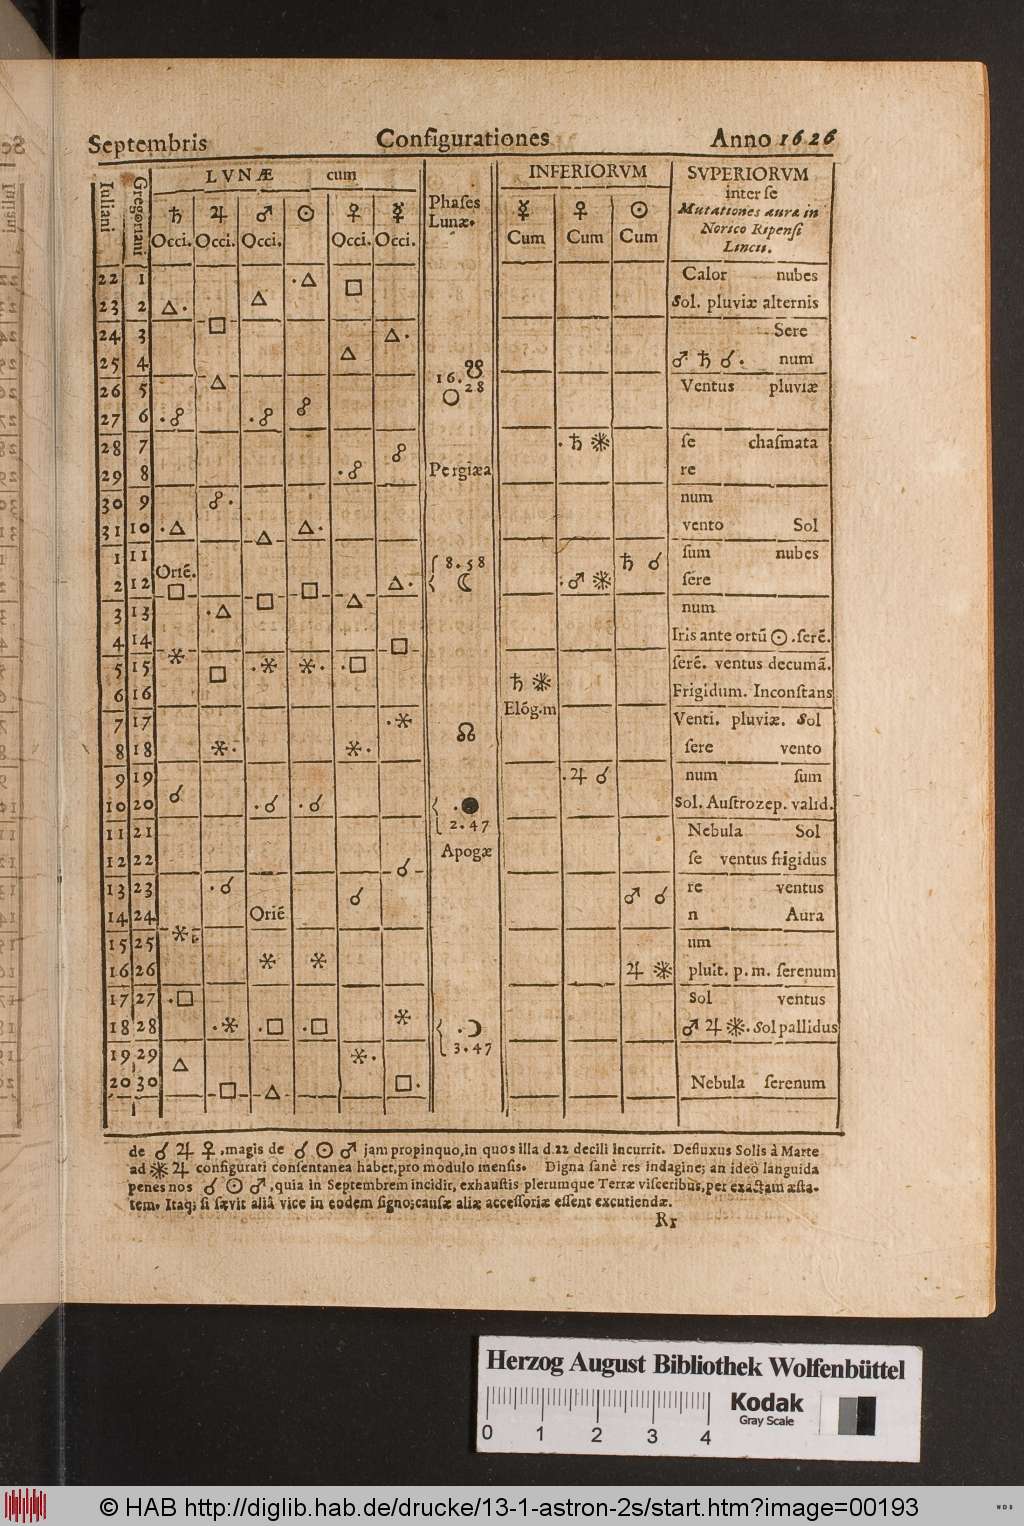 Septembris Configurationes Anno 1626
LVNÆ cum
INFERIORVM
SVPERIORVM
inter se
Mutationes auræ in
Norico Ripensi
Lincii.
Iuliani.
Gregoriani
♄ ♃ ♂ ☉ ♀ ☿
Occi. Occi. Occi. Occi. Occi.
Phases
Lunæ.
☿ ♀ ☉
Cum Cum Cum
22 1 .△ □ Calor nubes
23 2 △. △ Sol. pluviæ alternis
24 3 □ △. Sere
25 4 △ ☋ ♂ ♄ ☌. num
26 5 △ 16.28 ○ Ventus pluviæ
27 6 .☍ .☍ ☍
28 7 ☍ .♄ ⚹ se chasmata
29 8 .☍ Pergiæa re
30 9 ☍. num
31 10 .△ △ △. vento Sol
1 11 8.58 ♄ ☌ sum nubes
Oriē.
2 12 □ □ □ △ △. ☾ .♂ ⚹ sere
3 13 .△ num
4 14 □ Iris ante ortū ☉.serē.
5 15 ⚹ □ .⚹ ⚹. .□ serē. ventus decumā.
6 16 ♄ ⚹ Frigidum. Inconstans
Elōg.m
7 17 .⚹ ☊ Venti. pluviæ. Sol
8 18 ⚹. ⚹. sere vento
9 19 .♃ ☌ num sum
10 20 ☌ .☌ .☌ .● Sol. Austrozep. valid.
2.47
11 21 Nebula Sol
Apogæ
12 22 ☌ se ventus frigidus
13 23 .☌ ☌ ♂ ☌ re ventus
14 24 Oriē n Aura
15 25 ⚹ um
16 26 ⚹ ⚹ ♃ ⚹ pluit. p.m. serenum
17 27 .□ Sol ventus
18 28 .⚹ .□ .□ ⚹ .☽ ♂ ♃ ⚹. Sol pallidus
3.47
19 29 △ ⚹.
20 30 □ △ □. Nebula serenum
de ☌ ♃ ♀, magis de ☌ ☉ ♂ jam propinquo, in quos illa d.22 decili incurrit. Defluxus Solis à Marte
ad ⚹ ♃ configurari consentanea habet, pro modulo mensis. Digna sanè res indagine; an ideò languida
penes nos ☌ ☉ ♂, quia in Septembrem incidit, exhaustis plerumque Terræ visceribus, per exactam æsta-
tem. Itaq; si sævit aliâ vice in eodem signo; causæ aliæ accessoriæ essent excutiendæ.
Rr
Herzog August Bibliothek Wolfenbüttel
Kodak
Gray Scale
0 1 2 3 4
© HAB http://diglib.hab.de/drucke/13-1-astron-2s/start.htm?image=00193